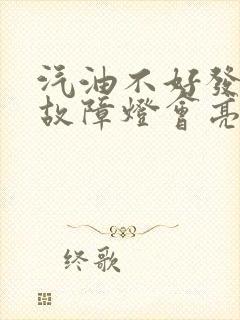 汽油不好發
故障燈會亮
终歌